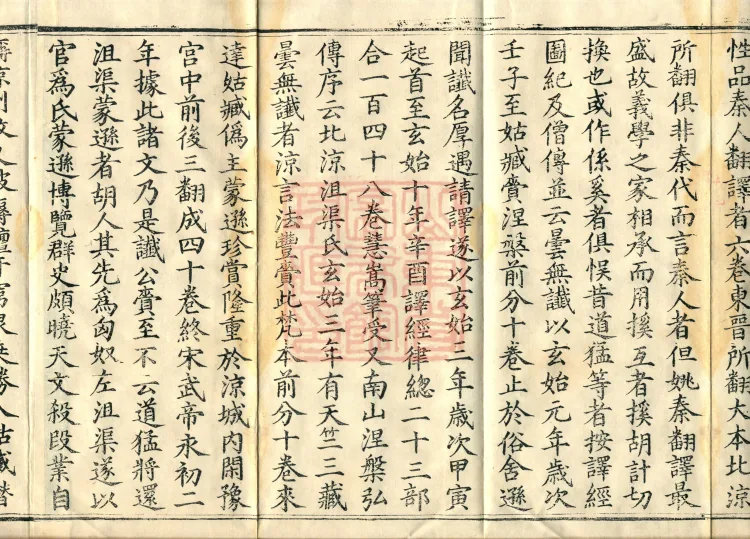 性品秦人翻譯者六卷東晉所翻大本北涼
所翻俱非秦代而言秦人者但姚秦翻譯最
盛故義學之家相承而用揆互者揆胡計切
換也或作係奚者俱悮昔道猛等者按譯經
圖紀及僧傳並云曇無讖以玄始元年歲次
壬子至姑臧賷涅槃前分十卷止於俗舍遜
聞讖名厚遇請譯遂以玄始三年歲次甲寅
起首至玄始十年辛酉譯經律總二十三部
合一百四十八卷慧嵩筆受又南山涅槃弘
傳序云北涼沮渠氏玄始三年有天竺三藏
曇無讖者涼言法豐賷此梵本前分十卷來
達姑臧偽主蒙遜珍賞隆重於涼城内閑豫
宮中前後三翻成四十卷終宋武帝永初二
年據此諸文乃是讖公賷至不云道猛將還
沮渠蒙遜者胡人其先為匈奴左沮渠遂以
官爲氏蒙遜博覽群史頗曉天文殺段業自